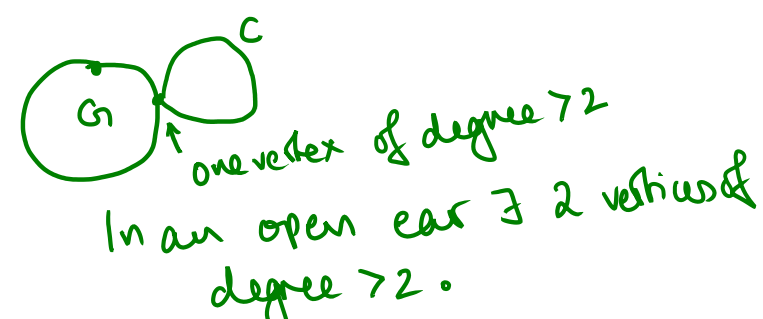 C
G
one vertex of degree >2
In an open ear ∃ 2 vertices of
degree >2.